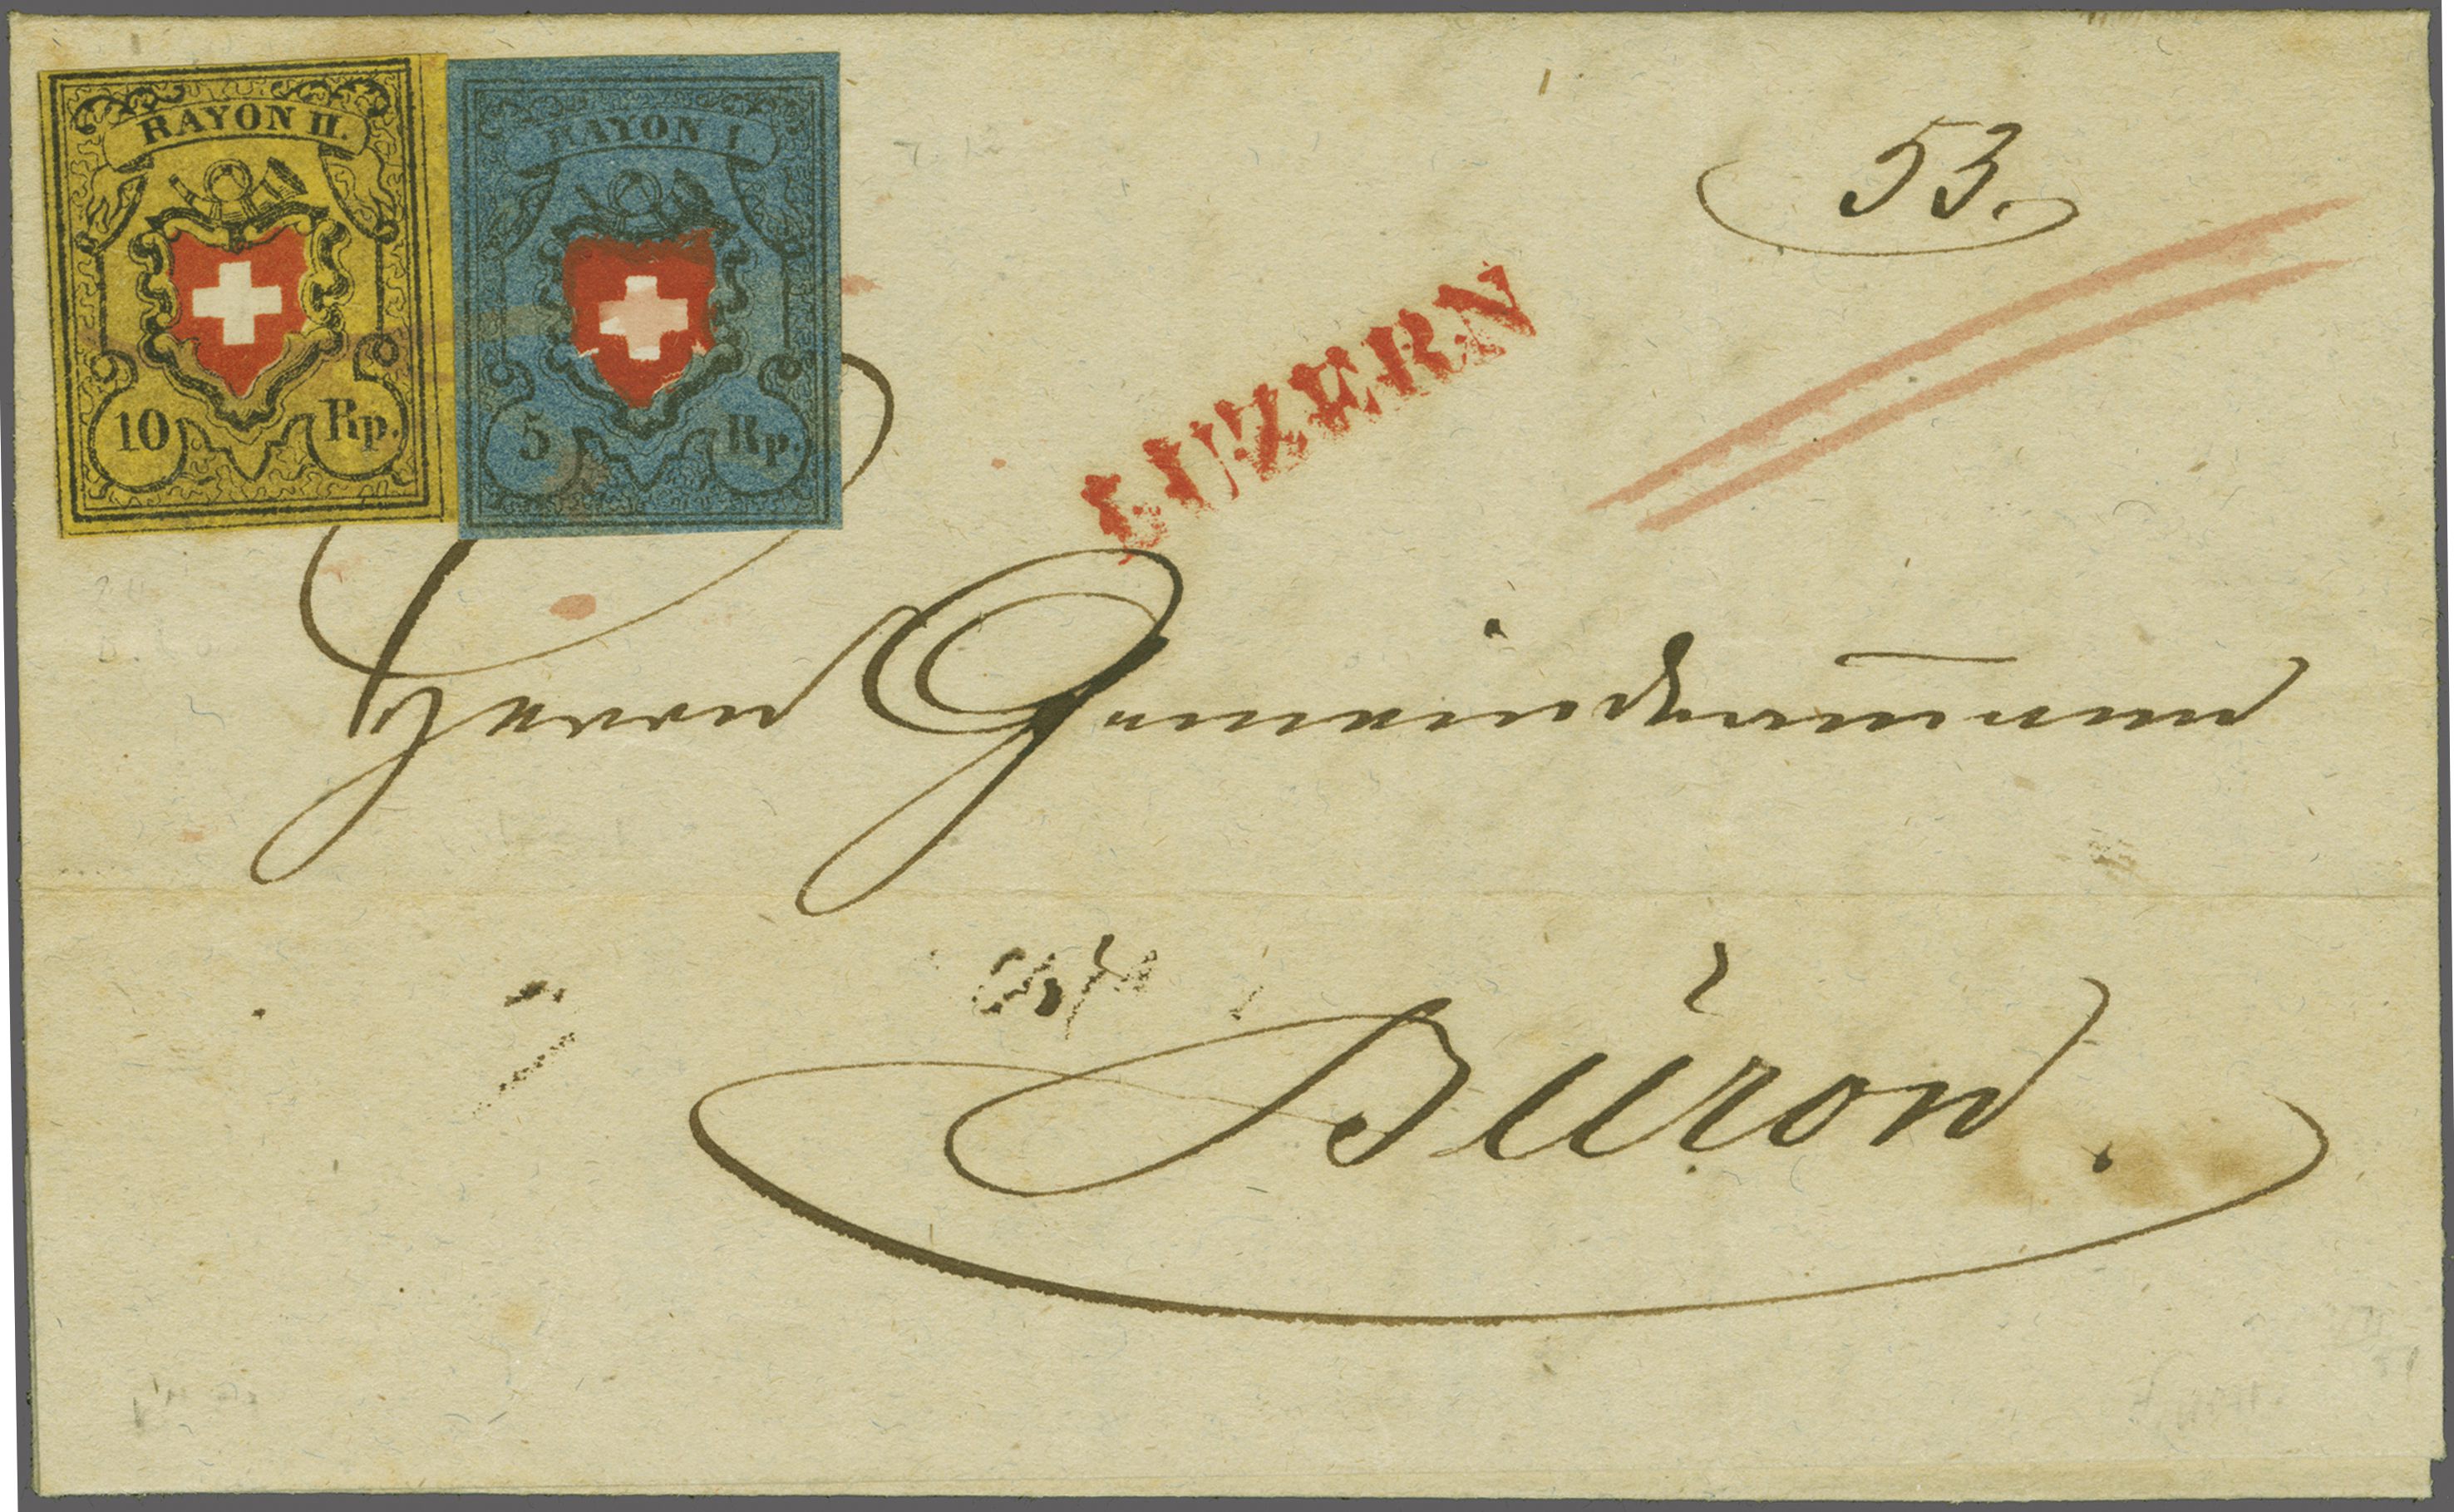 RAYON II.
10 Rp.
RAYON I.
5 Rp.
53.
LUZERN
Herrn Gemeindeam̅ann
Büron.